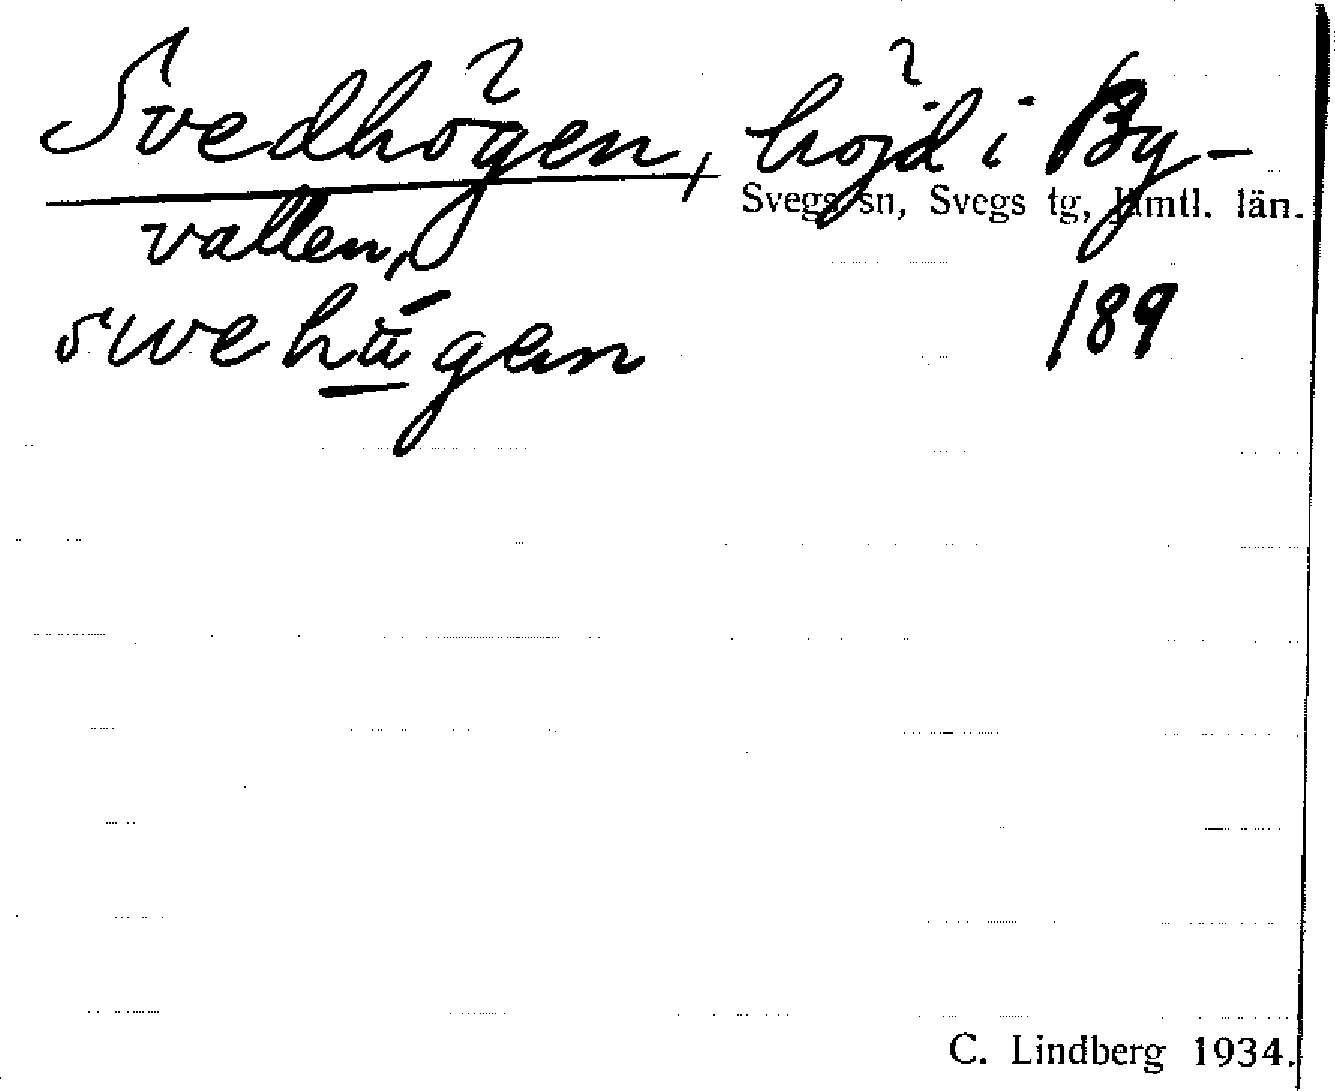 Svedhögen, höjd i By-
Svegs sn, Svegs tg, Jämtl. län.
vallen,
189
C. Lindberg 1934.